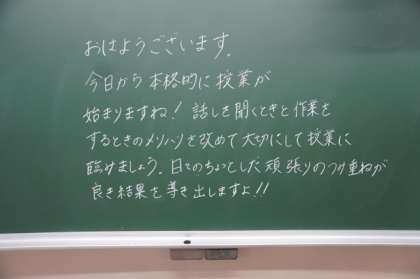 おはようございます。
今日から本格的に授業が
始まりますね！話しを聞くときと作業を
するときのメリハリを改めて大切にして授業に
臨みましょう。日々のちょっとした頑張りのつみ重ねが
良き結果を導き出しますよ!!